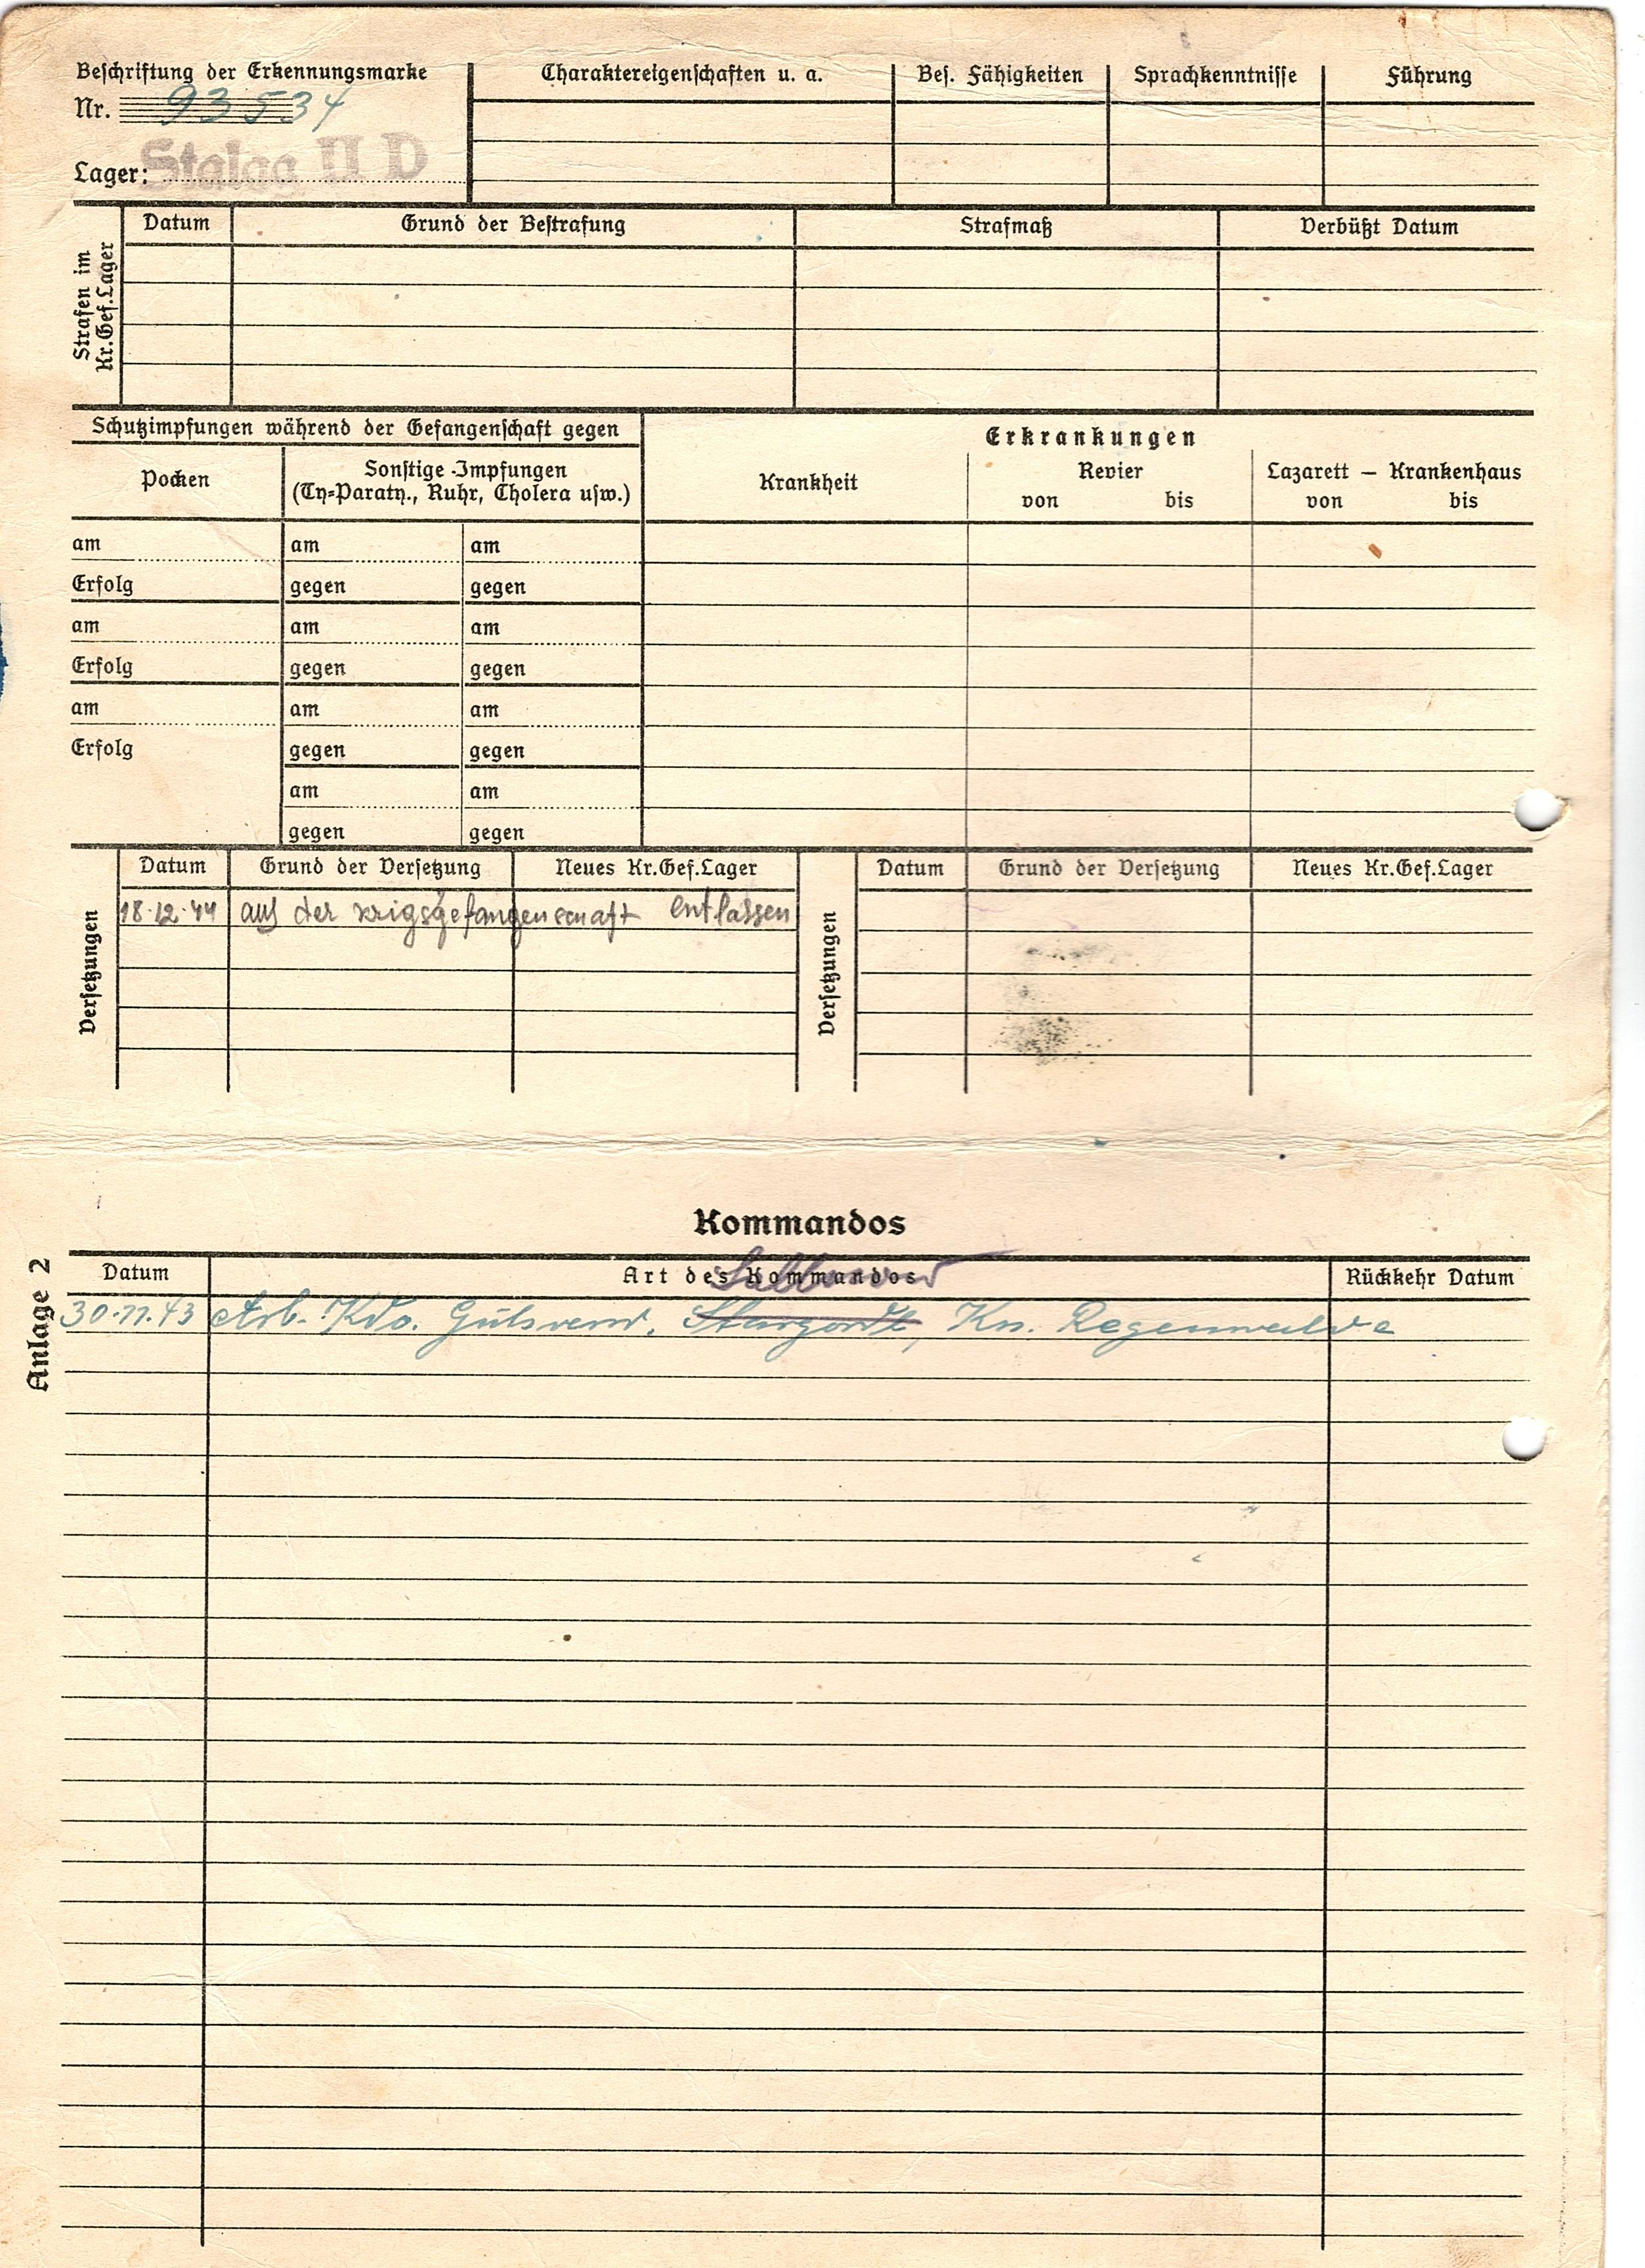 Beschriftung der Erkennungsmarke
Nr. 93534
Lager: Stalag II D
Charaktereigenschaften u. a.
Bes. Fähigkeiten
Sprachkenntnisse
Führung
Strafen im Kr.Gef.Lager
Datum
Grund der Bestrafung
Strafmaß
Verbüßt Datum
Schutzimpfungen während der Gefangenschaft gegen
Pocken
Sonstige Impfungen
(Ty=Paraty., Ruhr, Cholera usw.)
am am am
Erfolg gegen gegen
am am am
Erfolg gegen gegen
am am am
Erfolg gegen gegen
am am
gegen gegen
Erkrankungen
Krankheit
Revier
von bis
Lazarett – Krankenhaus
von bis
Versetzungen
Datum Grund der Versetzung Neues Kr.Gef.Lager
18.12.44 aus der krigsgefangenschaft entlassen
Versetzungen
Datum Grund der Versetzung Neues Kr.Gef.Lager
Anlage 2
Kommandos
Datum Art des Kommandos Rückkehr Datum
30.11.43 Arb.-Kdo. Stargordt, Krs. Regenwalde